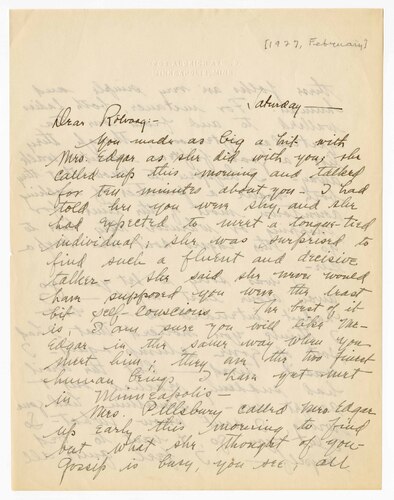 [1927, February]
MINNEAPOLIS, MINN.
Saturday —
Dear Rolvaag:-
You made as big a hit with
Mrs. Edgar as she did with you; she
called up this morning and talked
for ten minutes about you - I had
told her you were shy, and she
had expected to meet a tongue-tied
individual; she was surprised to
find such a fluent and decisive
talker - she said she never would
have supposed you were the least
bit self-conscious - The best of it
is, I am sure you will like Mr.
Edgar in the same way when you
meet him; they are the two finest
human beings I have yet met
in Minneapolis -
Mrs. Pillsbury called Mrs. Edgar
up early this morning to find
out what she thought of you -
Gossip is busy, you see; all